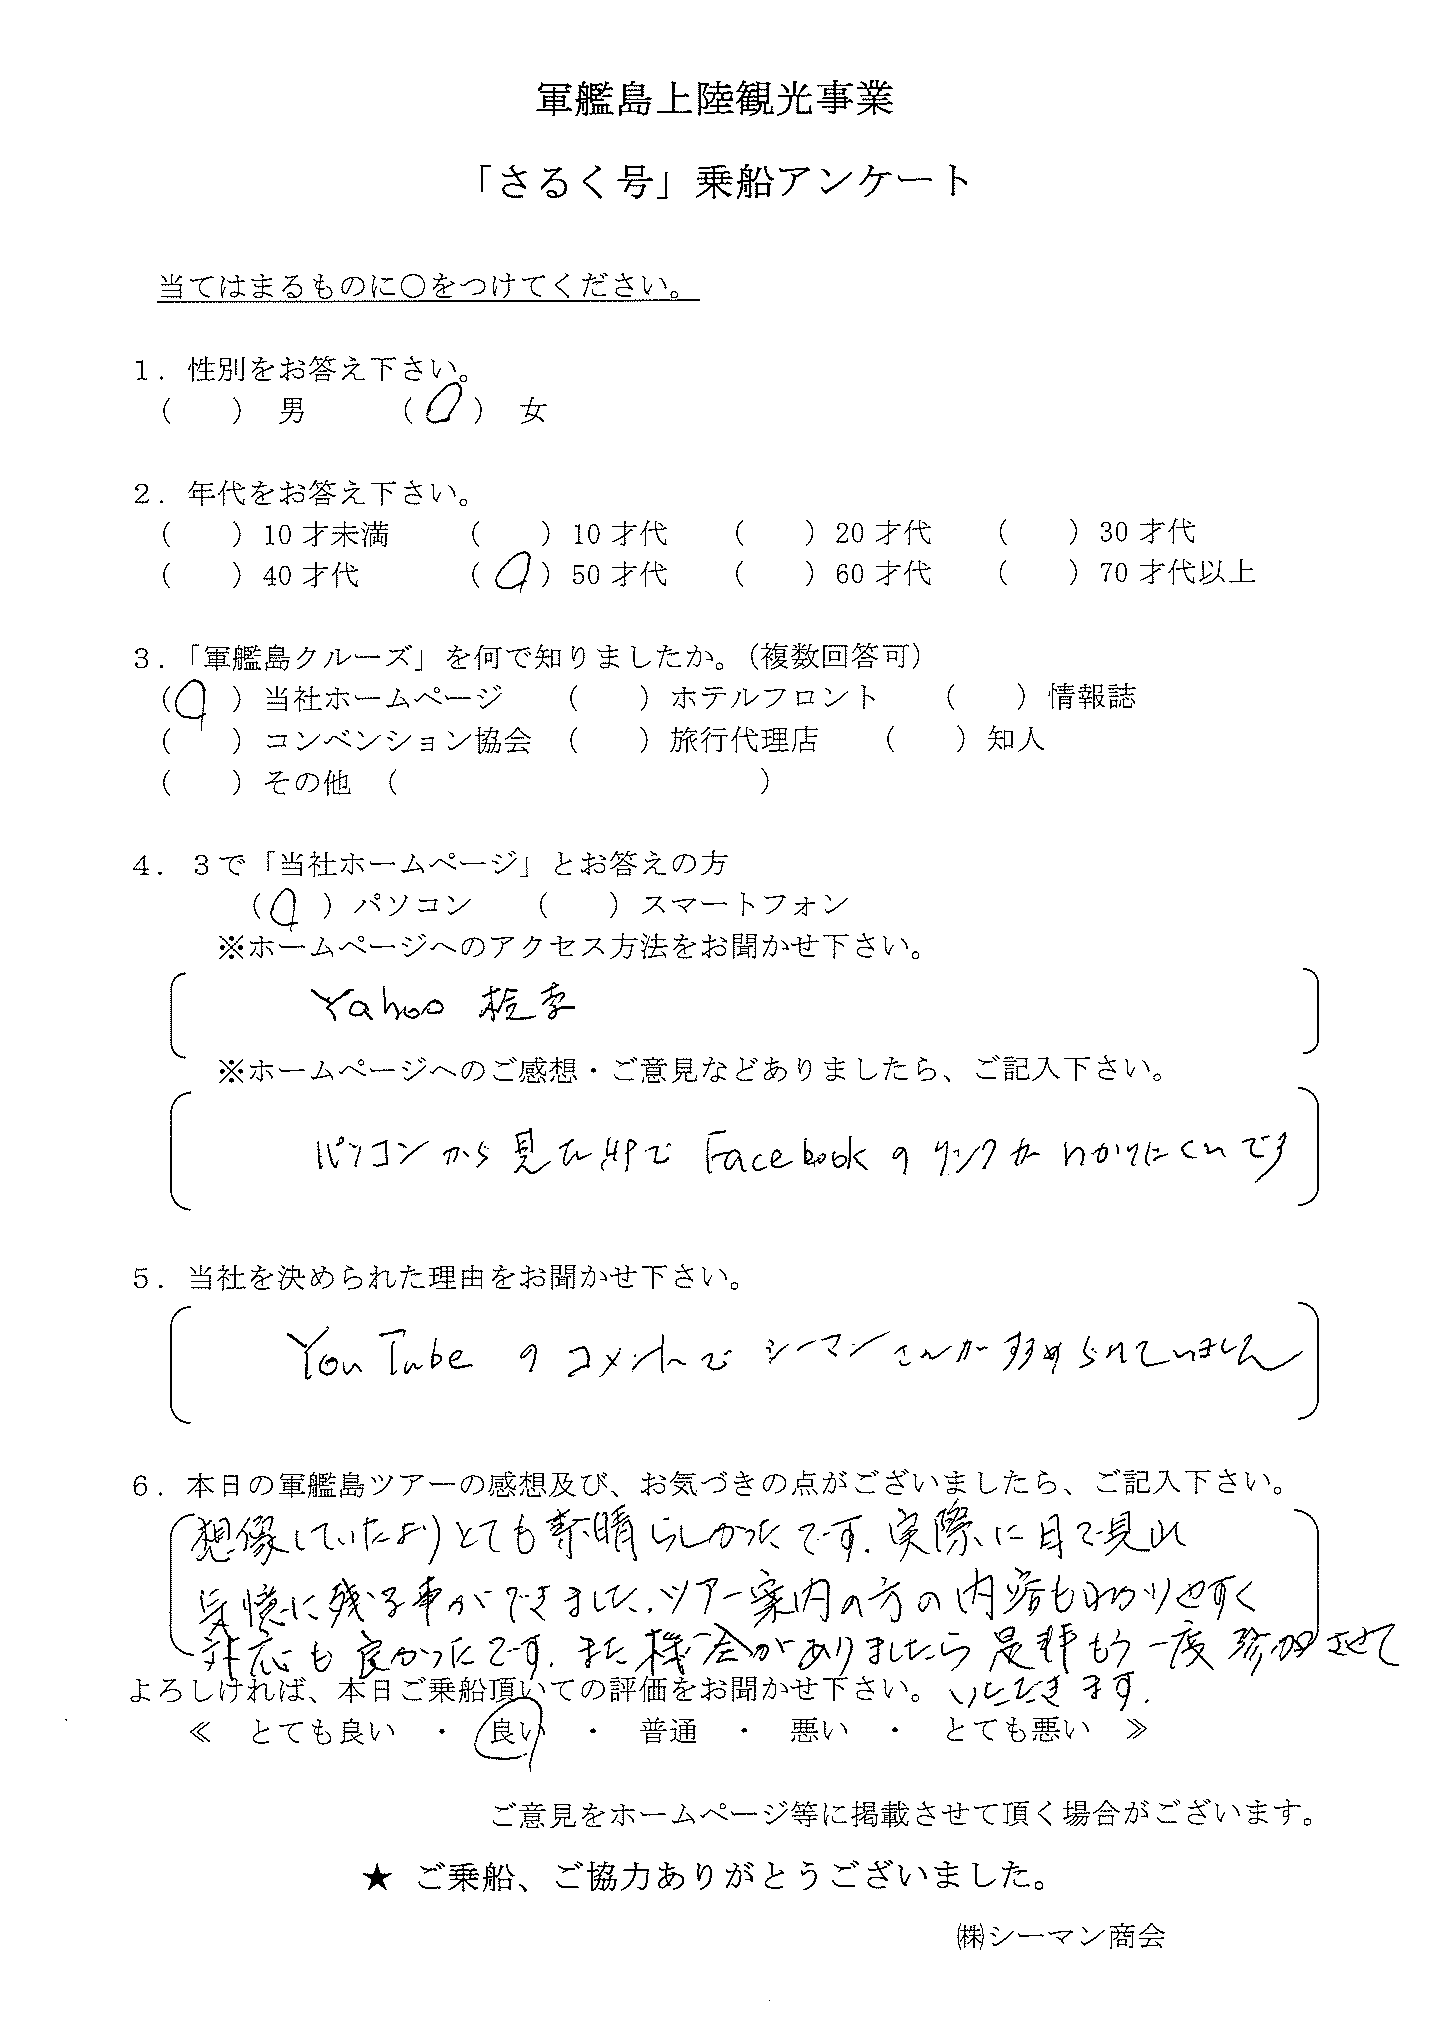 軍艦島上陸観光事業
「さるく号」乗船アンケート
当てはまるものに○をつけてください。
1．性別をお答え下さい。
（　　）男　　（○）女
2．年代をお答え下さい。
（　　）10才未満　（　　）10才代　（　　）20才代　（　　）30才代
（　　）40才代　（○）50才代　（　　）60才代　（　　）70才代以上
3．「軍艦島クルーズ」を何で知りましたか。（複数回答可）
（○）当社ホームページ　（　　）ホテルフロント　（　　）情報誌
（　　）コンベンション協会　（　　）旅行代理店　（　　）知人
（　　）その他　（　　　　　　　　）
4．3で「当社ホームページ」とお答えの方
（○）パソコン　（　　）スマートフォン
※ホームページへのアクセス方法をお聞かせ下さい。
Yahoo 検索
※ホームページへのご感想・ご意見などありましたら、ご記入下さい。
パソコンから見たHPで Facebookのリンクがわかりにくいです
5．当社を決められた理由をお聞かせ下さい。
YouTubeのコメントで シーマンさんがすすめられていました
6．本日の軍艦島ツアーの感想及び、お気づきの点がございましたら、ご記入下さい。
想像していたよりとても素晴らしかったです。実際に目で見れ
記憶に残る事ができました。ツアー案内の方の内容もわかりやすく
対応も良かったです。また機会がありましたら是非もう一度参加させて
よろしければ、本日ご乗船頂いての評価をお聞かせ下さい。 いただきます。
≪　とても良い　・　良い　・　普通　・　悪い　・　とても悪い　≫
ご意見をホームページ等に掲載させて頂く場合がございます。
★ ご乗船、ご協力ありがとうございました。
㈱シーマン商会